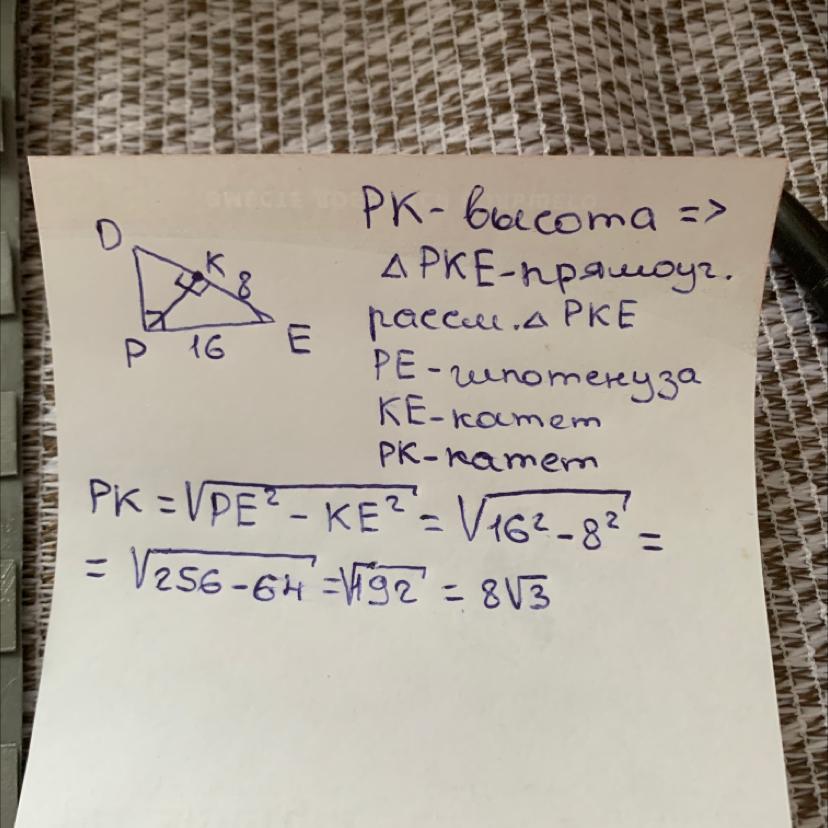 D
K
8
P
16
E
PK - высота =>
△ PKE - прямоуг.
рассм. △ PKE
PE - гипотенуза
KE - катет
PK - катет
PK = √PE² - KE² = √16² - 8² =
= √256 - 64 = √192 = 8√3